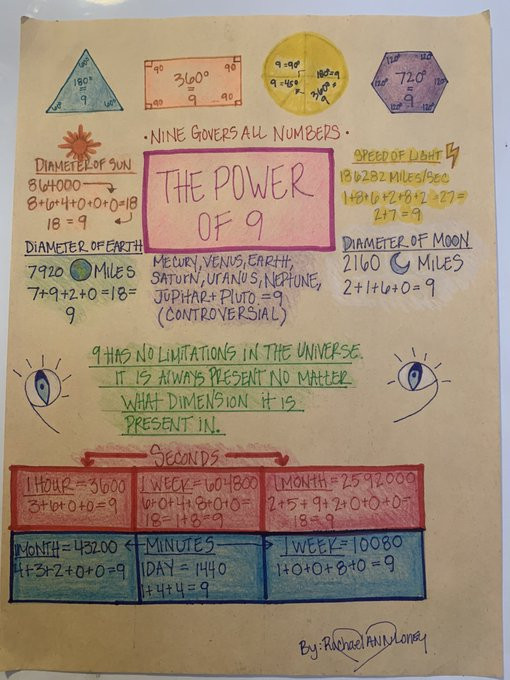 60°
180°
=
9
60° 60°
90 90
360°
=
9
90 90
9=90°
180°=9
9=45°
360°=
9
120° 120°
120° 720° 120°
=
9
120° 120°
•NINE GOVERS ALL NUMBERS•
DIAMETER OF SUN
864000
8+6+4+0+0+0=18
18=9
THE POWER
OF 9
SPEED OF LIGHT
186282 MILES/SEC
1+8+6+2+8+2=27=
2+7=9
DIAMETER OF EARTH
7920 MILES
7+9+2+0=18=
9
MECURY, VENUS, EARTH,
SATURN, URANUS, NEPTUNE,
JUPITAR+PLUTO=9
(CONTROVERSIAL)
DIAMETER OF MOON
2160 MILES
2+1+6+0=9
9 HAS NO LIMITATIONS IN THE UNIVERSE.
IT IS ALWAYS PRESENT NO MATTER
WHAT DIMENSION IT IS
PRESENT IN.
SECONDS
1 HOUR=3600
3+6+0+0=9
1 WEEK=604800
6+0+4+8+0+0=
18=1+8=9
1 MONTH=2592000
2+5+9+2+0+0+0=
18=9
1 MONTH=43200
4+3+2+0+0=9
MINUTES
1 DAY=1440
1+4+4=9
1 WEEK=10080
1+0+0+8+0=9
By: Rachael ANN Loney